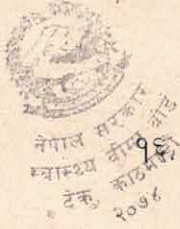 नेपाल सरकार
स्वास्थ्य बीमा बोर्ड
टेकु, काठमाडौं
२०७४
१६